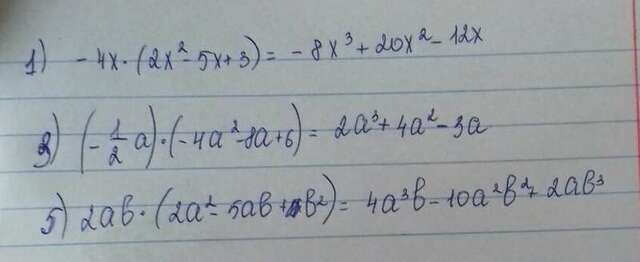 1) - 4x · (2x² - 5x + 3) = - 8x³ + 20x² - 12x
3) (- 1/2 a) · (- 4a² - 8a + 6) = 2a³ + 4a² - 3a
5) 2ab · (2a² - 5ab + b²) = 4a³b - 10a²b² + 2ab³